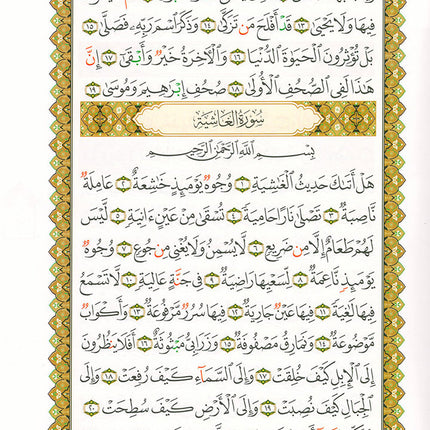 فِيهَا وَلَا يَحْيَىٰ ١٣ قَدْ أَفْلَحَ مَن تَزَكَّىٰ ١٤ وَذَكَرَ ٱسْمَ رَبِّهِۦ فَصَلَّىٰ ١٥
بَلْ تُؤْثِرُونَ ٱلْحَيَوٰةَ ٱلدُّنْيَا ١٦ وَٱلْـَٔاخِرَةُ خَيْرٌ وَأَبْقَىٰٓ ١٧ إِنَّ
هَٰذَا لَفِى ٱلصُّحُفِ ٱلْأُولَىٰ ١٨ صُحُفِ إِبْرَٰهِيمَ وَمُوسَىٰ ١٩
سُورَةُ الغَاشِيَةِ
بِسْمِ ٱللَّهِ ٱلرَّحْمَٰنِ ٱلرَّحِيمِ
هَلْ أَتَىٰكَ حَدِيثُ ٱلْغَٰشِيَةِ ١ وُجُوهٌ يَوْمَئِذٍ خَٰشِعَةٌ ٢ عَامِلَةٌ
نَّاصِبَةٌ ٣ تَصْلَىٰ نَارًا حَامِيَةً ٤ تُسْقَىٰ مِنْ عَيْنٍ ءَانِيَةٍ ٥ لَّيْسَ
لَهُمْ طَعَامٌ إِلَّا مِن ضَرِيعٍ ٦ لَّا يُسْمِنُ وَلَا يُغْنِى مِن جُوعٍ ٧ وُجُوهٌ
يَوْمَئِذٍ نَّاعِمَةٌ ٨ لِّسَعْيِهَا رَاضِيَةٌ ٩ فِى جَنَّةٍ عَالِيَةٍ ١٠ لَّا تَسْمَعُ
فِيهَا لَٰغِيَةً ١١ فِيهَا عَيْنٌ جَارِيَةٌ ١٢ فِيهَا سُرُرٌ مَّرْفُوعَةٌ ١٣ وَأَكْوَابٌ
مَّوْضُوعَةٌ ١٤ وَنَمَارِقُ مَصْفُوفَةٌ ١٥ وَزَرَابِىُّ مَبْثُوثَةٌ ١٦ أَفَلَا يَنظُرُونَ
إِلَى ٱلْإِبِلِ كَيْفَ خُلِقَتْ ١٧ وَإِلَى ٱلسَّمَآءِ كَيْفَ رُفِعَتْ ١٨ وَإِلَى
ٱلْجِبَالِ كَيْفَ نُصِبَتْ ١٩ وَإِلَى ٱلْأَرْضِ كَيْفَ سُطِحَتْ ٢٠